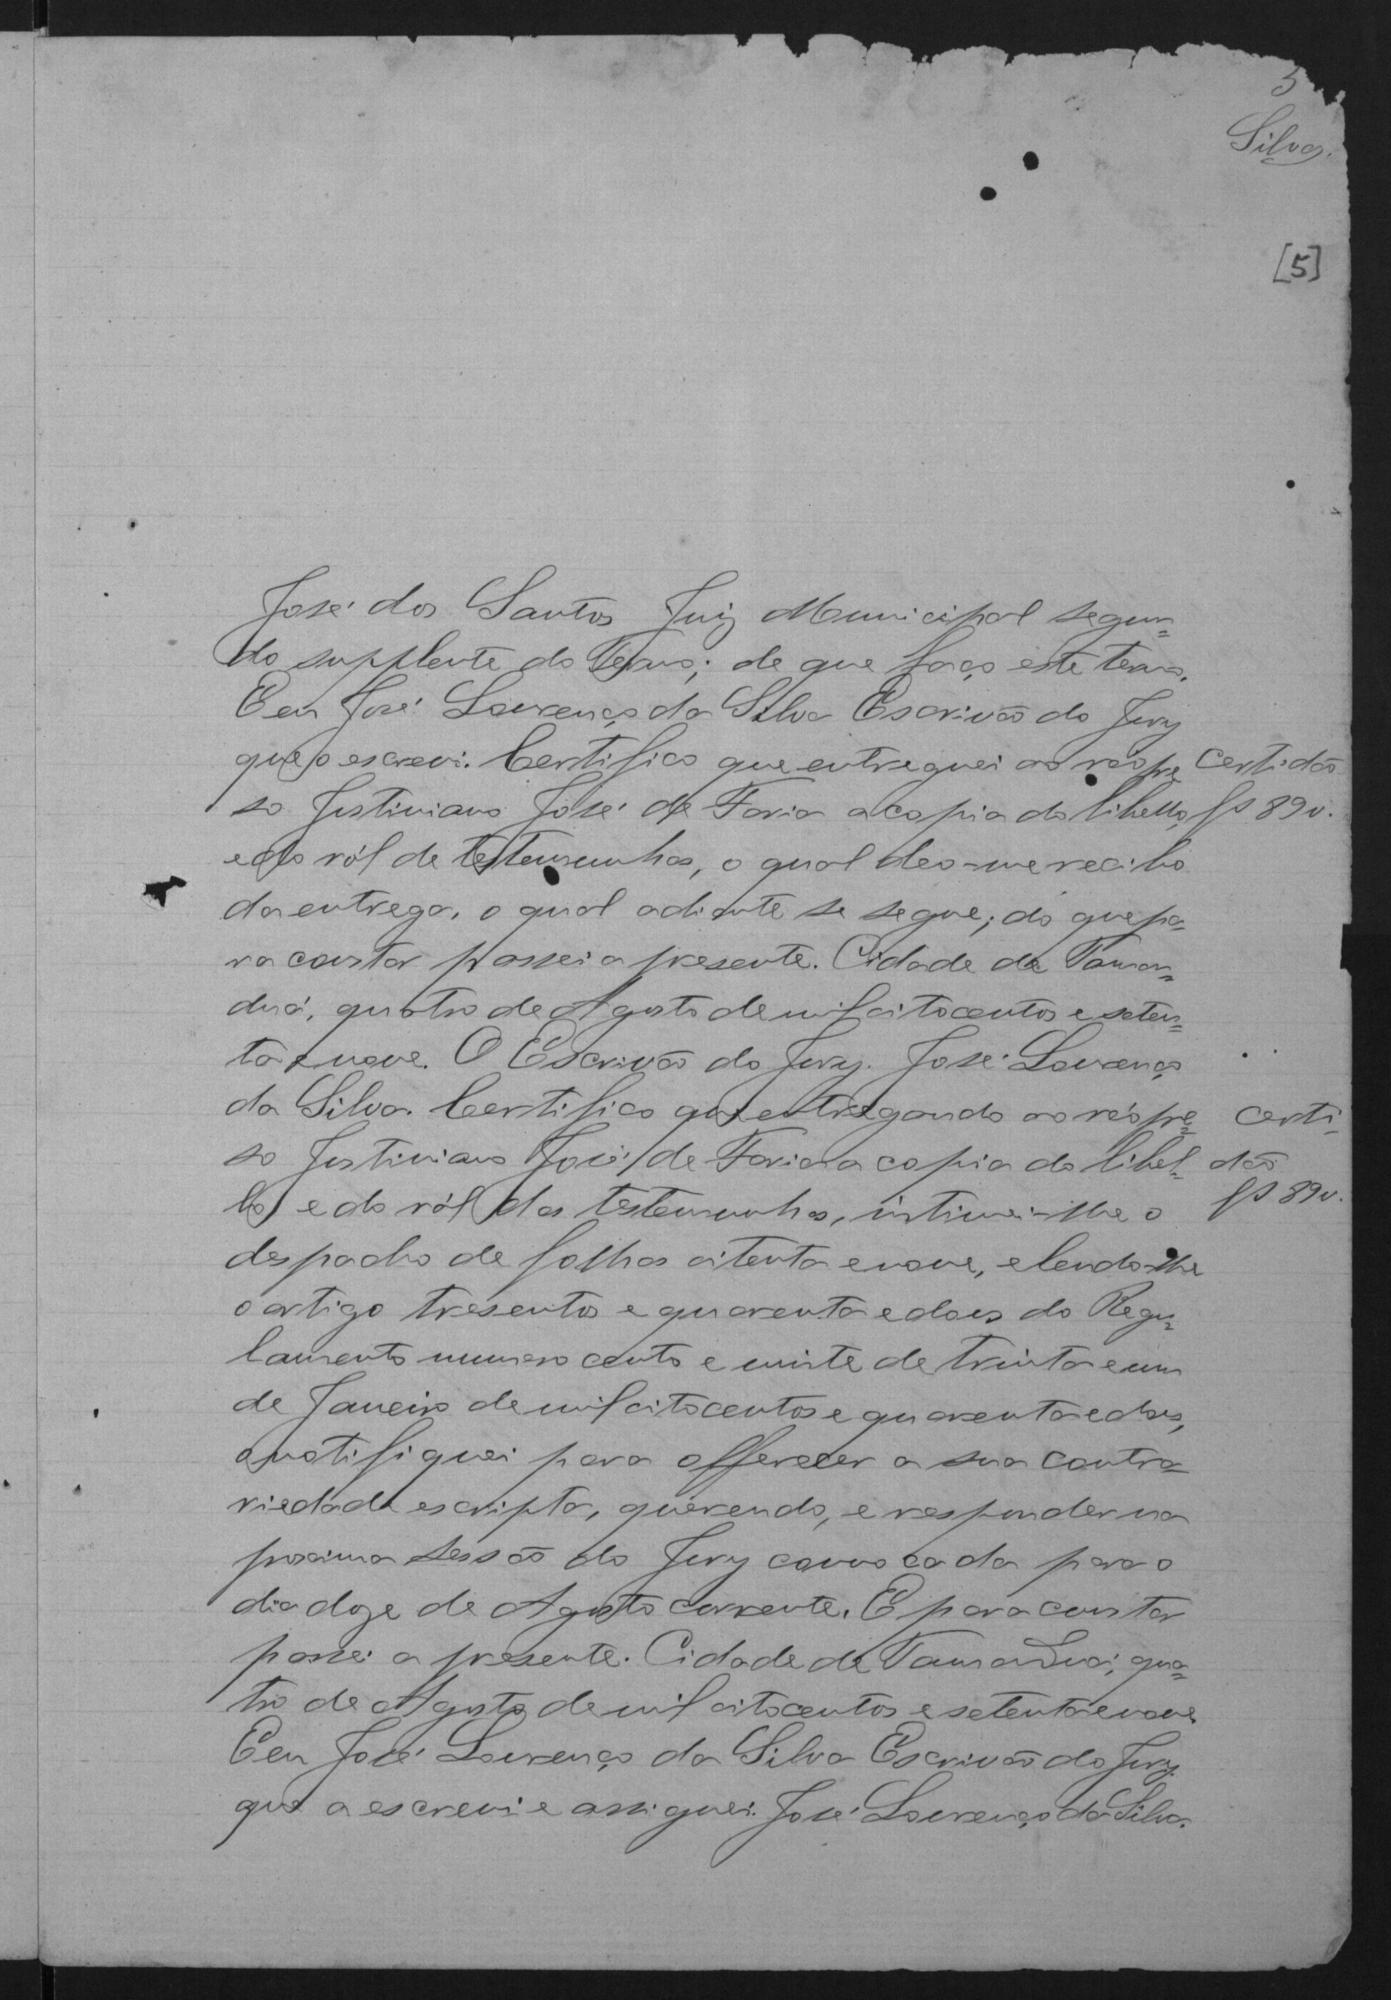 5
Silva.
[5]
José dos Santos Juiz Municipal segun=
do supplente do Termo; de que faço este termo.
E eu José Lourenço da Silva Escrivão do Jury
que o escrevi. Certifico que entreguei ao réo pre
Certidão
so Justiniano José de Faria a copia do libello,
fs 89v.
e do ról de testemunhas, o qual deo-me recibo
da entrega, o qual adiante se segue; do que pa=
ra constar passei a presente. Cidade de Taman=
duá, quatro de Agosto de mil oitocentos e seten=
ta e nove. O Escrivão do Jury. José Lourenço
da Silva. Certifico que entregando ao réo pre=
Certi=
so Justiniano José de Faria a copia do libel=
dão
lo e do ról das testemunhas, intimei-lhe o
fs 89v.
despacho de folhas oitenta e nove, e lendo-lhe
o artigo tresentos e quarenta e dois do Regu=
lamento numero cento e vinte de trinta e um
de Janeiro de mil oitocentos e quarenta e dois,
o notifiquei para offerecer a sua contra=
riedade escripta, querendo, e responder na
proxima sessão do Jury convocada para o
dia doze de Agosto corrente. E para constar
passei a presente. Cidade de Tamanduá, qua=
tro de Agosto de mil oitocentos e setenta e nove.
E eu José Lourenço da Silva Escrivão do Jury
que a escrevi e assignei. José Lourenço da Silva.